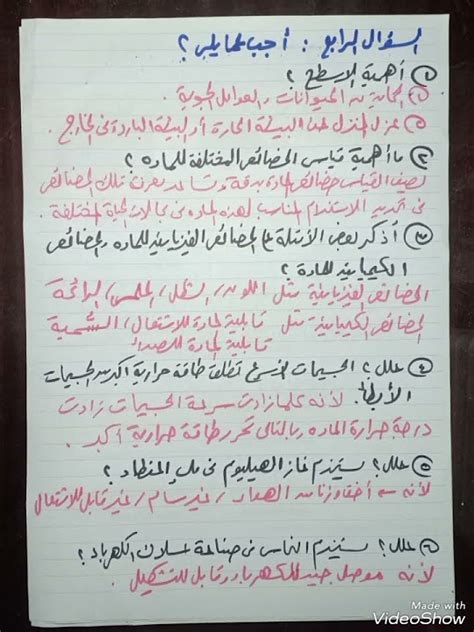 السؤال الرابع : أجب عما يلى ؟
① أهمية الاسطح ؟
① الحماية من الحيوانات والعوامل الجوية
② عزل المنزل عن البيئة الحارة أو البيئة الباردة فى الخارج
② ما أهمية قياس الخصائص المختلفة للمادة ؟
القياس خصائص المادة بدقة تلك الخصائص
فى تحديد الاستخدام المناسب لهذه المادة فى مجالات الحياة المختلفة
③ أذكر بعض الأمثلة على الخصائص الفيزيائية للمادة والخصائص
الكيميائية للمادة ؟
الخصائص الفيزيائية مثل اللون / الشكل / الملمس / الرائحة
الخصائص الكيميائية مثل قابلية المادة للاشتعال / السُّمية
قابلية المادة للصدأ
④ علل ؟ الجسيمات الأسرع تطلق طاقة حرارية أكبر من الجسيمات
الأبطأ . لأنه كلما زادت سرعة الجسيمات زادت
درجة حرارة المادة وبالتالى تحرر طاقة حرارية أكبر .
⑤ علل ؟ يستخدم غاز الهيليوم فى ملئ المنطاد ؟
لأنه أخف وزنا من الهواء / غير سام / غير قابل للاشتعال
⑥ علل ؟ يستخدم النحاس فى صناعة أسلاك الكهرباء ؟
لأنه موصل جيد للكهرباء وقابل للتشكيل .
Made with
VideoShow